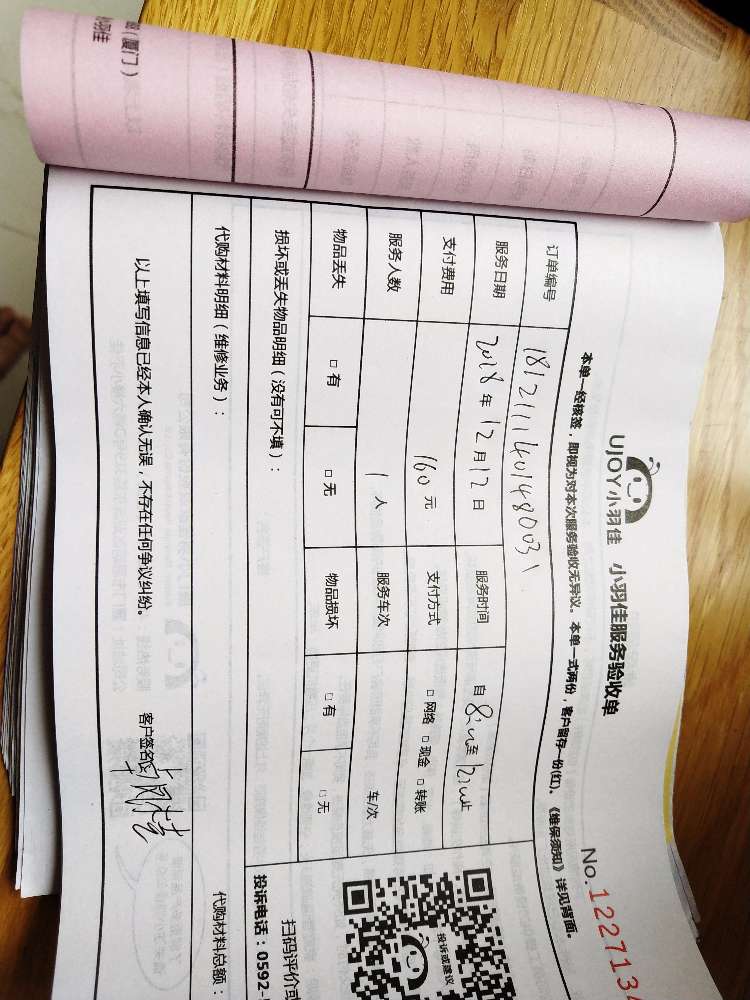 UJOY小羽佳 小羽佳服务验收单
No.122713
本单一经核签，即视为对本次服务验收无异议。本单一式两份，客户留存一份(红)。《维保须知》详见背面。
订单编号 1812111401480031
服务日期 2018年12月12日 服务时间 自8:00至12:00止
支付费用 160元 支付方式 □网络 □现金 □转账
服务人数 1人 服务车次 车/次
物品丢失 □有 □无 物品损坏 □有 □无
损坏或丢失物品明细（没有可不填）：
代购材料明细（维修业务）： 代购材料总额：
以上填写信息已经本人确认无误，不存在任何争议纠纷。 客户签名
投诉或建议
扫码评价或
投诉电话：0592-
（厦门）
小羽佳